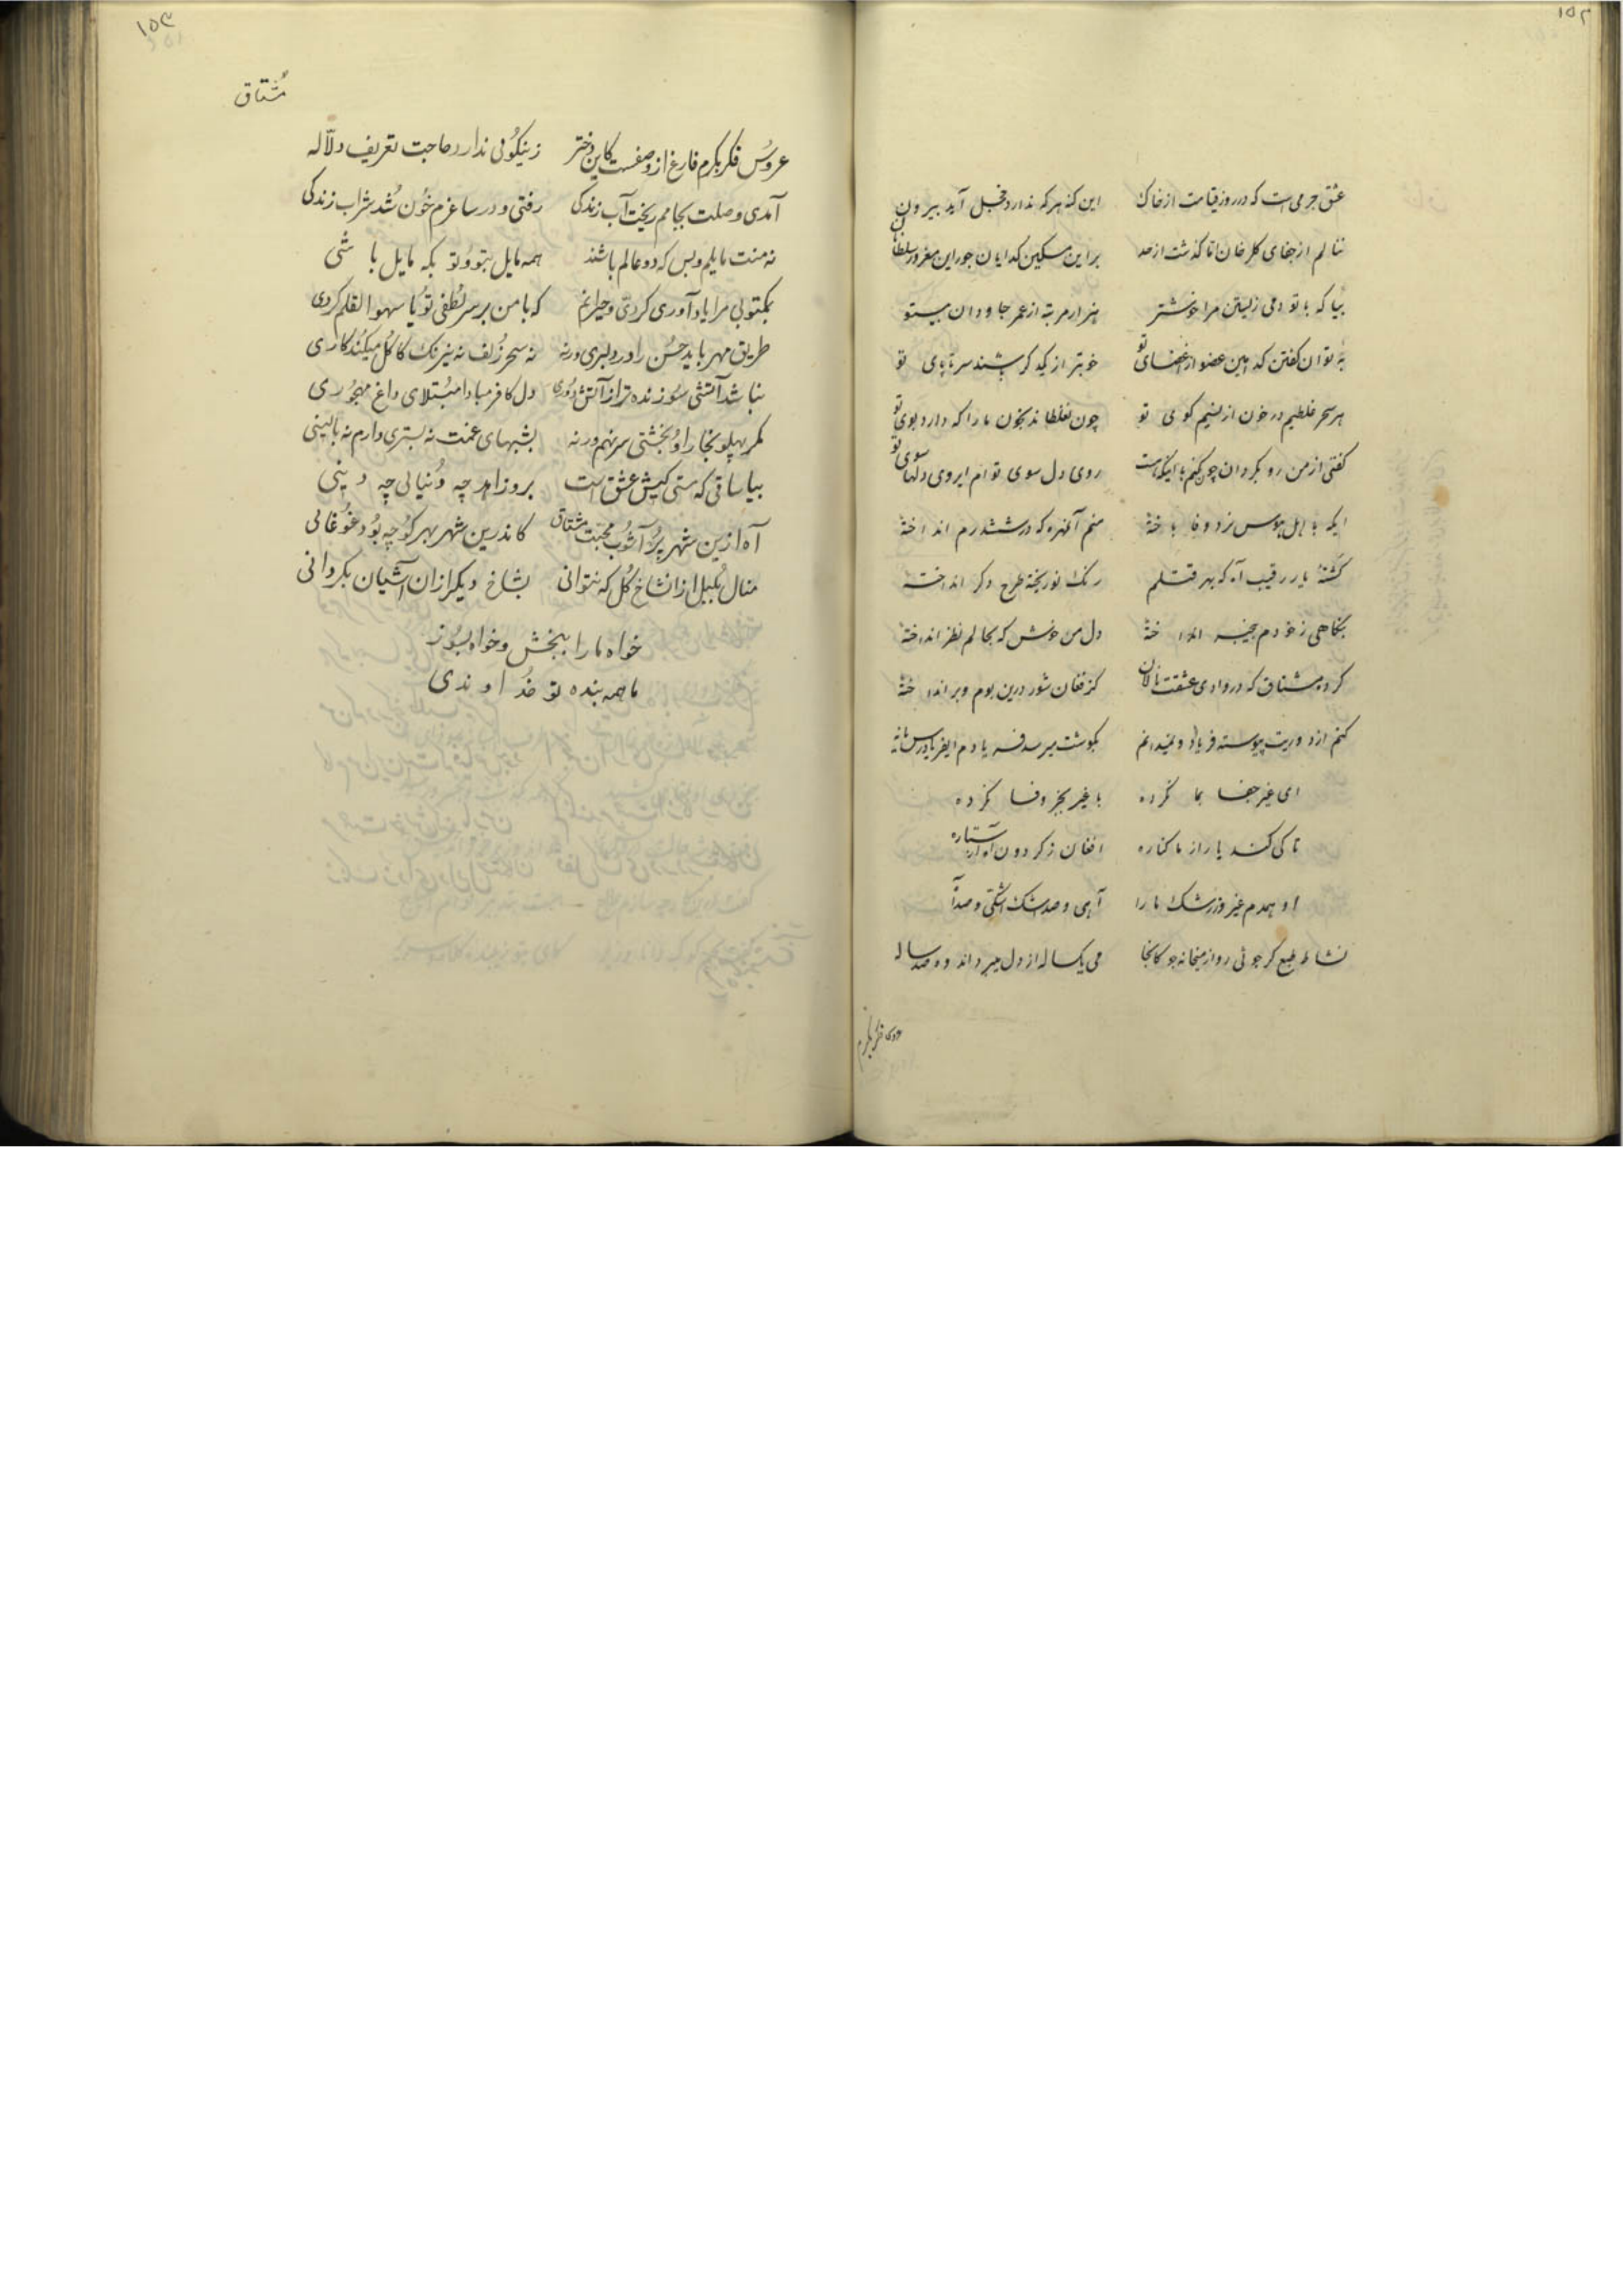 ۱۵۲
عشق جرمی است که در روز قیامت از خاک این کنه هر که ندارد خجل آید بیرون
ننالم از جفای کلرخان اما کذشت از حد بر این مسکین کدایان جور این مغرور سلطانان
بیا که با تو دمی زیستن مرا خوشتر هزار مرتبه از عمر جاودان بیتو
نتوان کفتن کدامین عضو از عضای تو خوبتر از یکدکر باشند سر تا پای تو
هر سحر غلطیم در خون از نسیم کوی تو چون نغلطاند بخون ما را که دارد بوی تو
کفتی از من رو بکردان چون کنم با اینکه هست روی دل سوی توام ای روی دلها سوی تو
ایکه با اهل هوس نرد وفا باخته منم آن مهره که در ششدرم انداخته
کشتهٔ یار رقیب آه که بهر قتلم رنک نو ریخته طرح دکر انداخته
بنکاهی ز خودم بیخبر انداخته دل من خوش که بحالم نظر انداخته
کرد مشتاق که در وادی عشقت نالان کز فغان شور درین بوم و بر انداخته
کنم از دوریت پیوسته فریاد و نمیدانم بکوشت میرسد فریادم ای فریادرس یا نه
ای غیر جفا بما نکرده با غیر بجز وفا نکرده
تا کی کند یار از ما کناره افغان ز کردون آه از ستاره
او همدم غیر وز رشک ما را آهی و صد اشک اشکی و صد آه
نشاط طبع کر جوئی رو از میخانه جو کانجا می یکساله از دل میبرد اندوه صد ساله
عروس فکر بکرم
۱۵۳
مشتاق
عروس فکر بکرم فارغ از وصفست کاین دختر زنیکوئی ندارد حاجت تعریف دلّاله
آمدی وصلت بجامم ریخت آب زندکی رفتی و در ساغرم خون شد شراب زندکی
نه منت مایلم و بس که دو عالم باشند همه مایل بتو و تو بکه مایل باشی
بمکتوبی مرا یادآوری کردی و حیرانم که با من بر سر لطفی تو یا سهو القلم کردی
طریق مهر باید حسن را در دلبری ورنه نه سحر زلف نه نیرنک کاکل میکند کاری
نباشد آتشی سوزنده تر از آتش دوری دل کافر مبادا مبتلای داغ مهجوری
مکر پهلو بخارا و بخشتی سر نهم ورنه بشبهای غمت نه بستری دارم نه بالینی
بیا ساقی که مستی کیش عشق است برو زاهد چه دنیائی چه دینی
آه ازین شهر پر آشوب محبت مشتاق کاندرین شهر بهر کوچه بود غوغائی
منال بلبل از انشاخ کل که نتوانی بشاخ دیکر ازان آشیان بکردانی
خواه ما را ببخش و خواه بسوز
ما همه بنده تو خداوندی